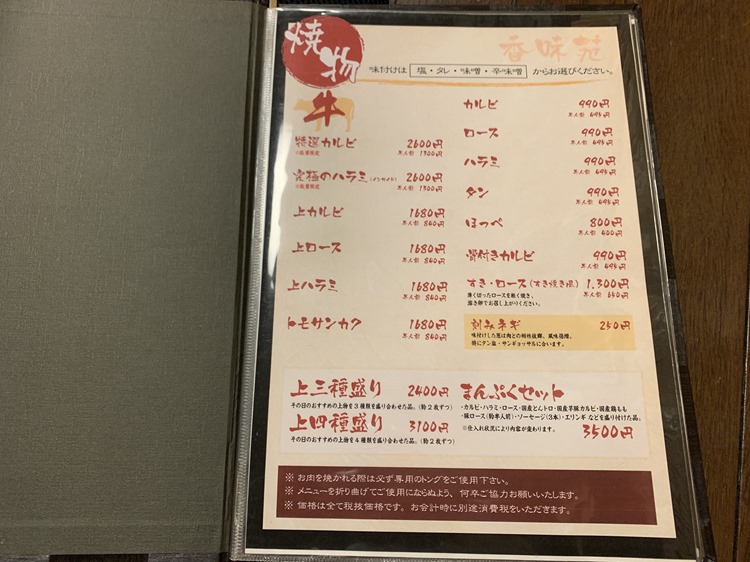 焼物
香味苑
味付けは 塩・タレ・味噌・辛味噌 からお選びください。
牛
特選カルビ 2600円
※数量限定 半人前 1300円
究極のハラミ(インサイド) 2600円
※数量限定 半人前 1300円
上カルビ 1680円
半人前 840円
上ロース 1680円
半人前 840円
上ハラミ 1680円
半人前 840円
トモサンカク 1680円
半人前 840円
カルビ 990円
半人前 495円
ロース 990円
半人前 495円
ハラミ 990円
半人前 495円
タン 990円
半人前 495円
ほっぺ 800円
半人前 400円
骨付きカルビ 990円
半人前 495円
すき・ロース(すき焼き風) 1,300円
薄く切ったロースを軽く焼き、 半人前 650円
溶き卵でお召し上がりください。
刻みネギ 250円
味付けした葱は肉との相性抜群、風味倍増。
特にタン塩・サンギョッサルに合います。
上三種盛り 2400円
その日のおすすめの上物を3種類を盛り合わせた品。(約2枚ずつ)
上四種盛り 3100円
その日のおすすめの上物を4種類を盛り合わせた品。(約2枚ずつ)
まんぷくセット
・カルビ・ハラミ・ロース・国産とんトロ・国産芋豚カルビ・国産鶏もも
・豚ロース(約半人前)・ソーセージ(3本)・エリンギ などを盛り付けた品。
※仕入れ状況により内容が変わります。 3500円
※ お肉を焼かれる際は必ず専用のトングをご使用下さい。
※ メニューを折り曲げてご使用にならぬよう、何卒ご協力お願いいたします。
※ 価格は全て税抜価格です。お会計時に別途消費税をいただきます。